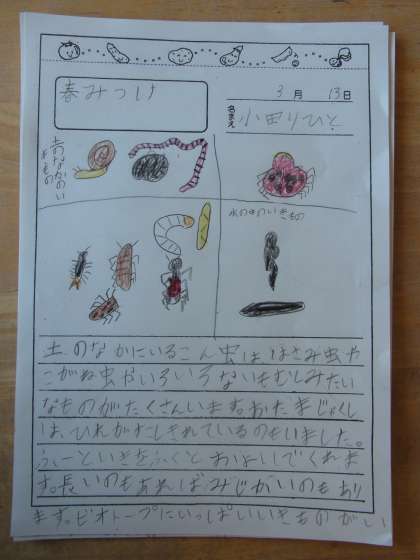 春みつけ
3月 13日
なまえ 小田りひと
土のなかのいきもの
水の中のいきもの
土のなかにいるこん虫ははさみ虫や
こがね虫やいろいろないもむしみたい
なものがたくさんいます。おたまじゃくし
は、ひれがすこしきれているのもいました。
ふーといきをふくとおよいでくれま
す。長いのもあればみじかいのもあり
ます。ビオトープにいっぱいいきものがい